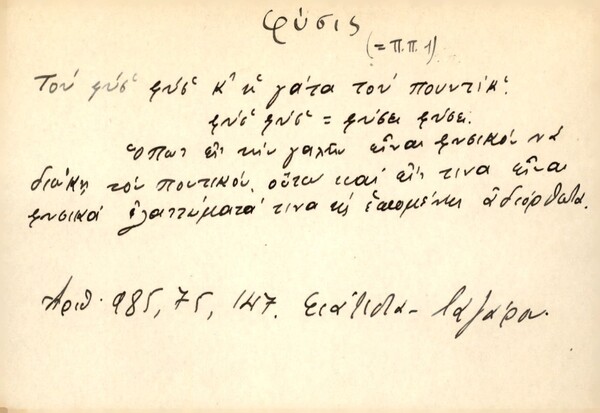 φύσις
(= Π.Π. 1)
Τού φύσ' φύσ' κ' ἡ γάτα τοὐ πουντίκ'.
φύσ' φύσ' = φύσει φύσει.
Ὅπως εἰς τὴν γαλῆν εἶναι φυσικὸν νὰ
διώκῃ τὸν ποντικόν, οὕτω καὶ εἴς τινα εἶναι
φυσικὰ ἐλαττώματά τινα ὡς ἑπομένως ἀδιόρθωτα.
Ἀριθ. 985, 75, 147. Σιάτιστα - Λαζάρου.